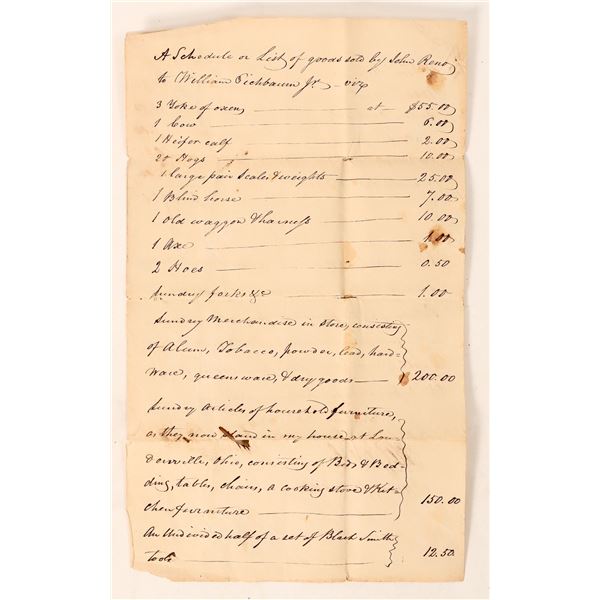 A Schedule or List of goods sold by John Reno
to William Eichbaum Jr. viz
3 Yoke of oxen at $55.00
1 Cow 6.00
1 Heifer calf 2.00
20 Hogs 10.00
1 large pair Scales & weights 25.00
1 Blind horse 7.00
1 Old waggon & harness 10.00
1 Axe 1.00
2 Hoes 0.50
Sundry forks &c 1.00
Sundrey Merchandise in Store, consisting
of Alum, Tobacco, powder, lead, hard-
ware, queensware, & dry goods 200.00
Sundry articles of household furniture,
as they now stand in my house at Lou-
donville, Ohio, consisting of Beds & Bed-
ding, tables, chairs, a cooking stove & Kit-
chen furniture 150.00
An Undivided half of a set of Black Smith
tools 12.50